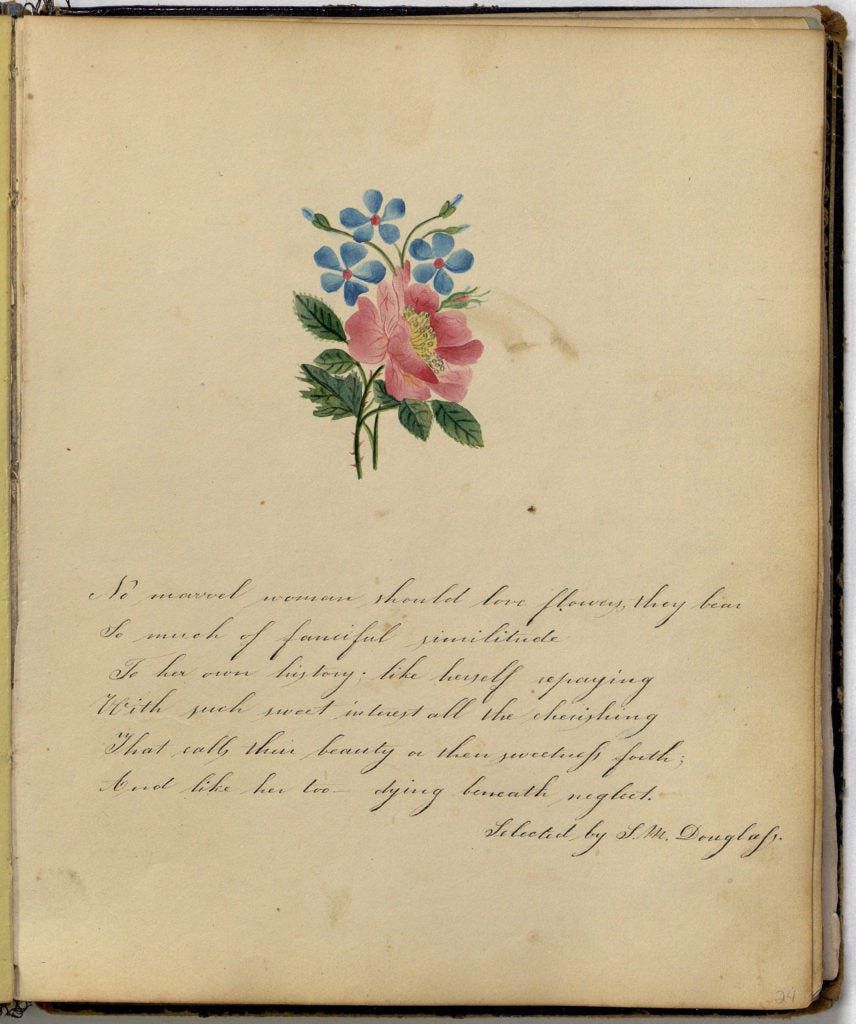 No marvel woman should love flowers, they bear
So much of fanciful similitude
To her own history; like herself repaying
With such sweet interest all the cherishing
That calls their beauty or their sweetness forth;
And like her too— dying beneath neglect.
Selected by S. M. Douglass.
24